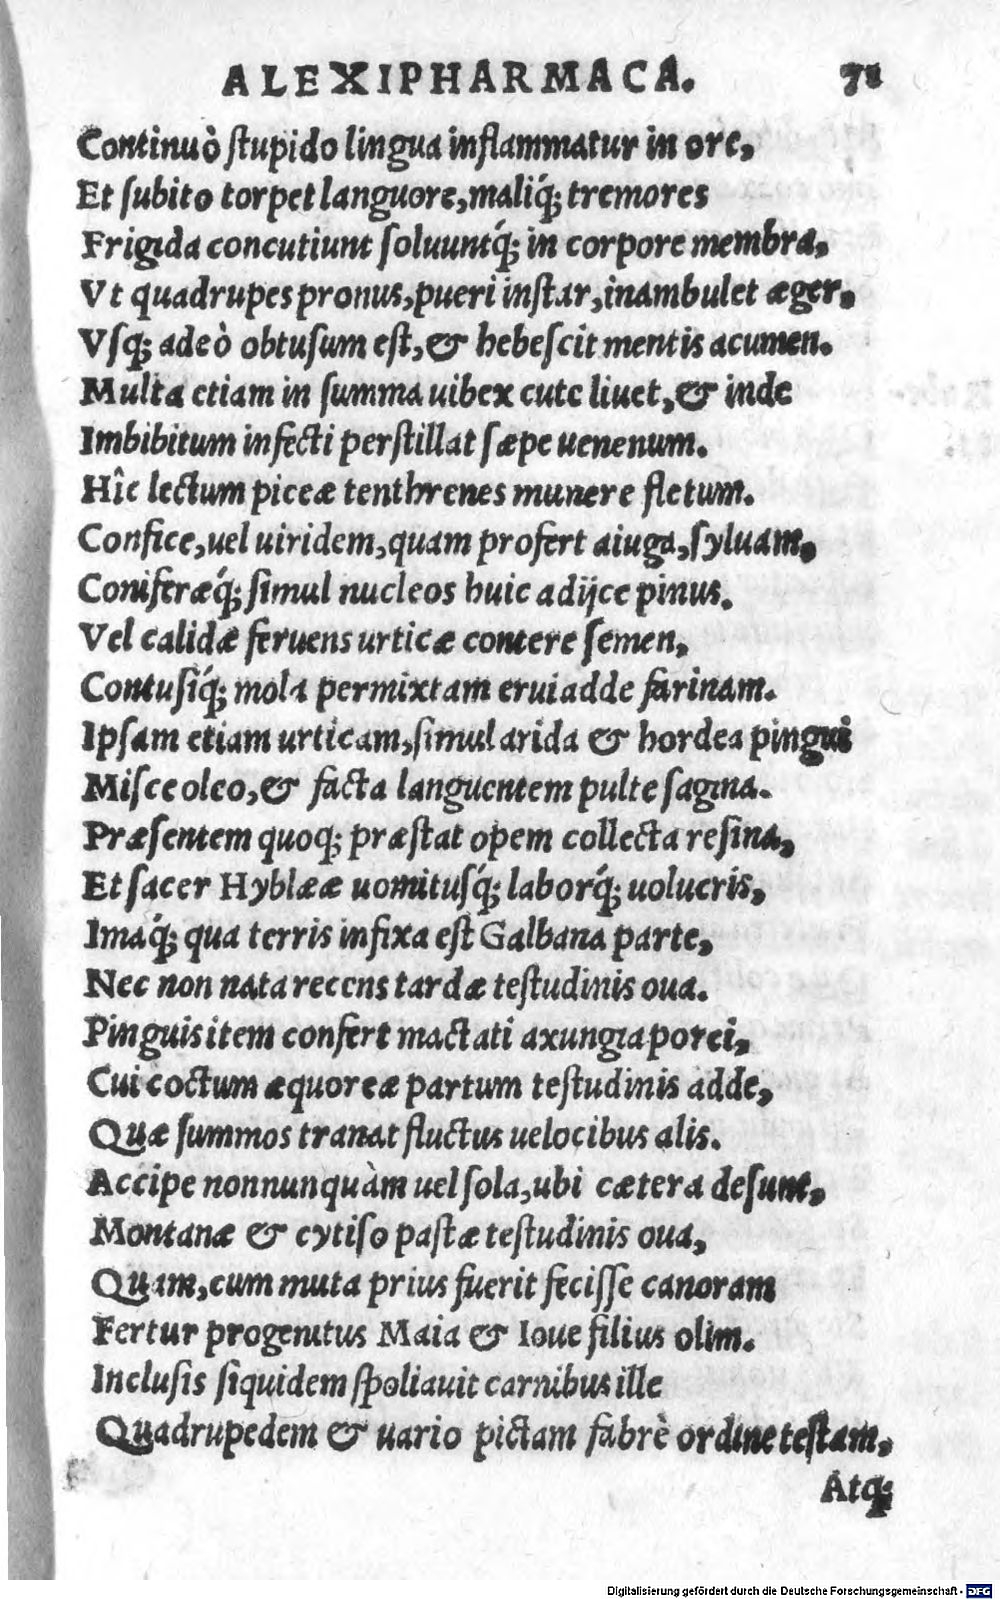 ALEXIPHARMACA. 71
Continuò ſtupido lingua inflammatur in ore,
Et ſubito torpet languore, maliq́; tremores
Frigida concutiunt ſoluuntq́; in corpore membra,
Vt quadrupes pronus, pueri inſtar, inambulet æger,
Vſq; adeò obtuſum eſt, & hebeſcit mentis acumen.
Multa etiam in ſumma uibex cute liuet, & inde
Imbibitum infecti perſtillat ſæpe uenenum.
Hîc lectum piceæ tenthrenes munere fletum.
Confice, uel uiridem, quam profert aiuga, ſyluam,
Coniferæq́; ſimul nucleos huic adijce pinus.
Vel calidæ feruens urticæ contere ſemen,
Contuſiq́; mola permixtam erui adde farinam.
Ipſam etiam urticam, ſimul arida & hordea pingui
Miſce oleo, & facta languentem pulte ſagina.
Præſentem quoq; præſtat opem collecta reſina,
Et ſacer Hyblææ uomitusq́; laborq́; uolucris,
Imaq́; qua terris infixa eſt Galbana parte,
Nec non nata recens tardæ teſtudinis oua.
Pinguis item confert mactati axungia porci,
Cui coctum æquoreæ partum teſtudinis adde,
Quæ ſummos tranat fluctus uelocibus alis.
Accipe nonnunquàm uel ſola, ubi cætera deſunt,
Montanæ & cytiſo paſtæ teſtudinis oua,
Quam, cum muta prius fuerit feciſſe canoram
Fertur progenitus Maia & Ioue filius olim.
Incluſis ſiquidem ſpoliauit carnibus ille
Quadrupedem & uario pictam fabrè ordine teſtam,
Atq;
Digitalisierung gefördert durch die Deutsche Forschungsgemeinschaft - DFG